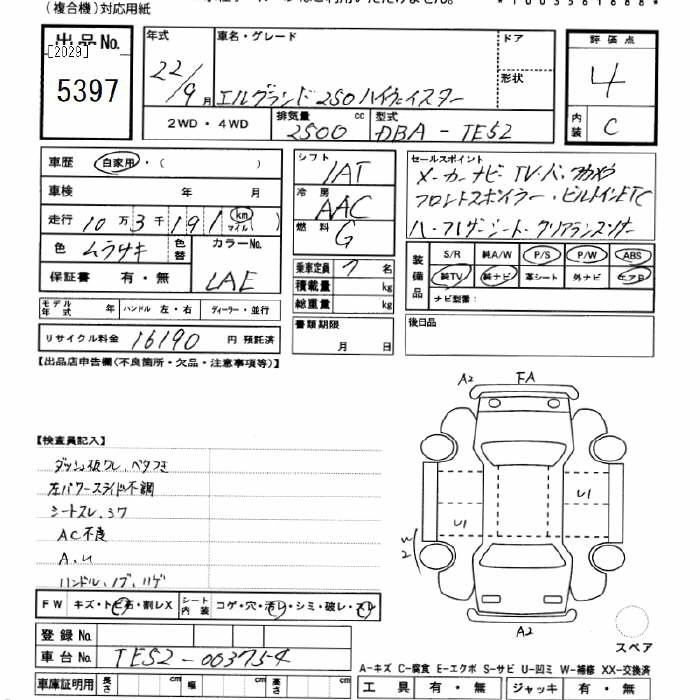 (複合機)対応用紙
出品No.
[2029]
5397
年式 22/9月
車名・グレード エルグランド250ハイウェイスター
ドア
形状
評価点 4
内装 C
2WD・4WD
排気量 2500 cc
型式 DBA-TE52
車歴 自家用・( )
車検 年 月
走行 10万3千191(km マイル)
色 ムラサキ 色替 カラーNo. LAE
保証書 有・無
モデル年式 年 ハンドル 左・右 ディーラー・並行
リサイクル料金 16190 円 預託済
シフト IAT
冷房 AAC
燃料 G
乗車定員 7 名
積載量 kg
総重量 kg
書類期限 月 日
セールスポイント
メーカーナビ TV・バックカメラ
フロントスポイラー・ビルトインETC
ハーフレザーシート・クリアランスソナー
装備品 S/R 純A/W P/S P/W ABS
純TV 純ナビ 革シート 外ナビ エアB
ナビ型番:
後日品
【出品店申告欄(不良箇所・欠品・注意事項等)】
【検査員記入】
ダッシュ板ワレ、ベタつき
左パワースライド不調
シートスレ、シワ
AC不良
A、U
ハンドル、ノブ、ハゲ
A2 FA
U1
U1
W2
A2
スペア
FW キズ・トビ石・割レX シート内装 コゲ・穴・汚レ・シミ・破レ・スレ
登録No.
車台No. TE52-003754
車庫証明用 長さ cm 幅 cm 高さ cm
A-キズ C-腐食 E-エクボ S-サビ U-凹ミ W-補修 XX-交換済
工具 有・無 ジャッキ 有・無